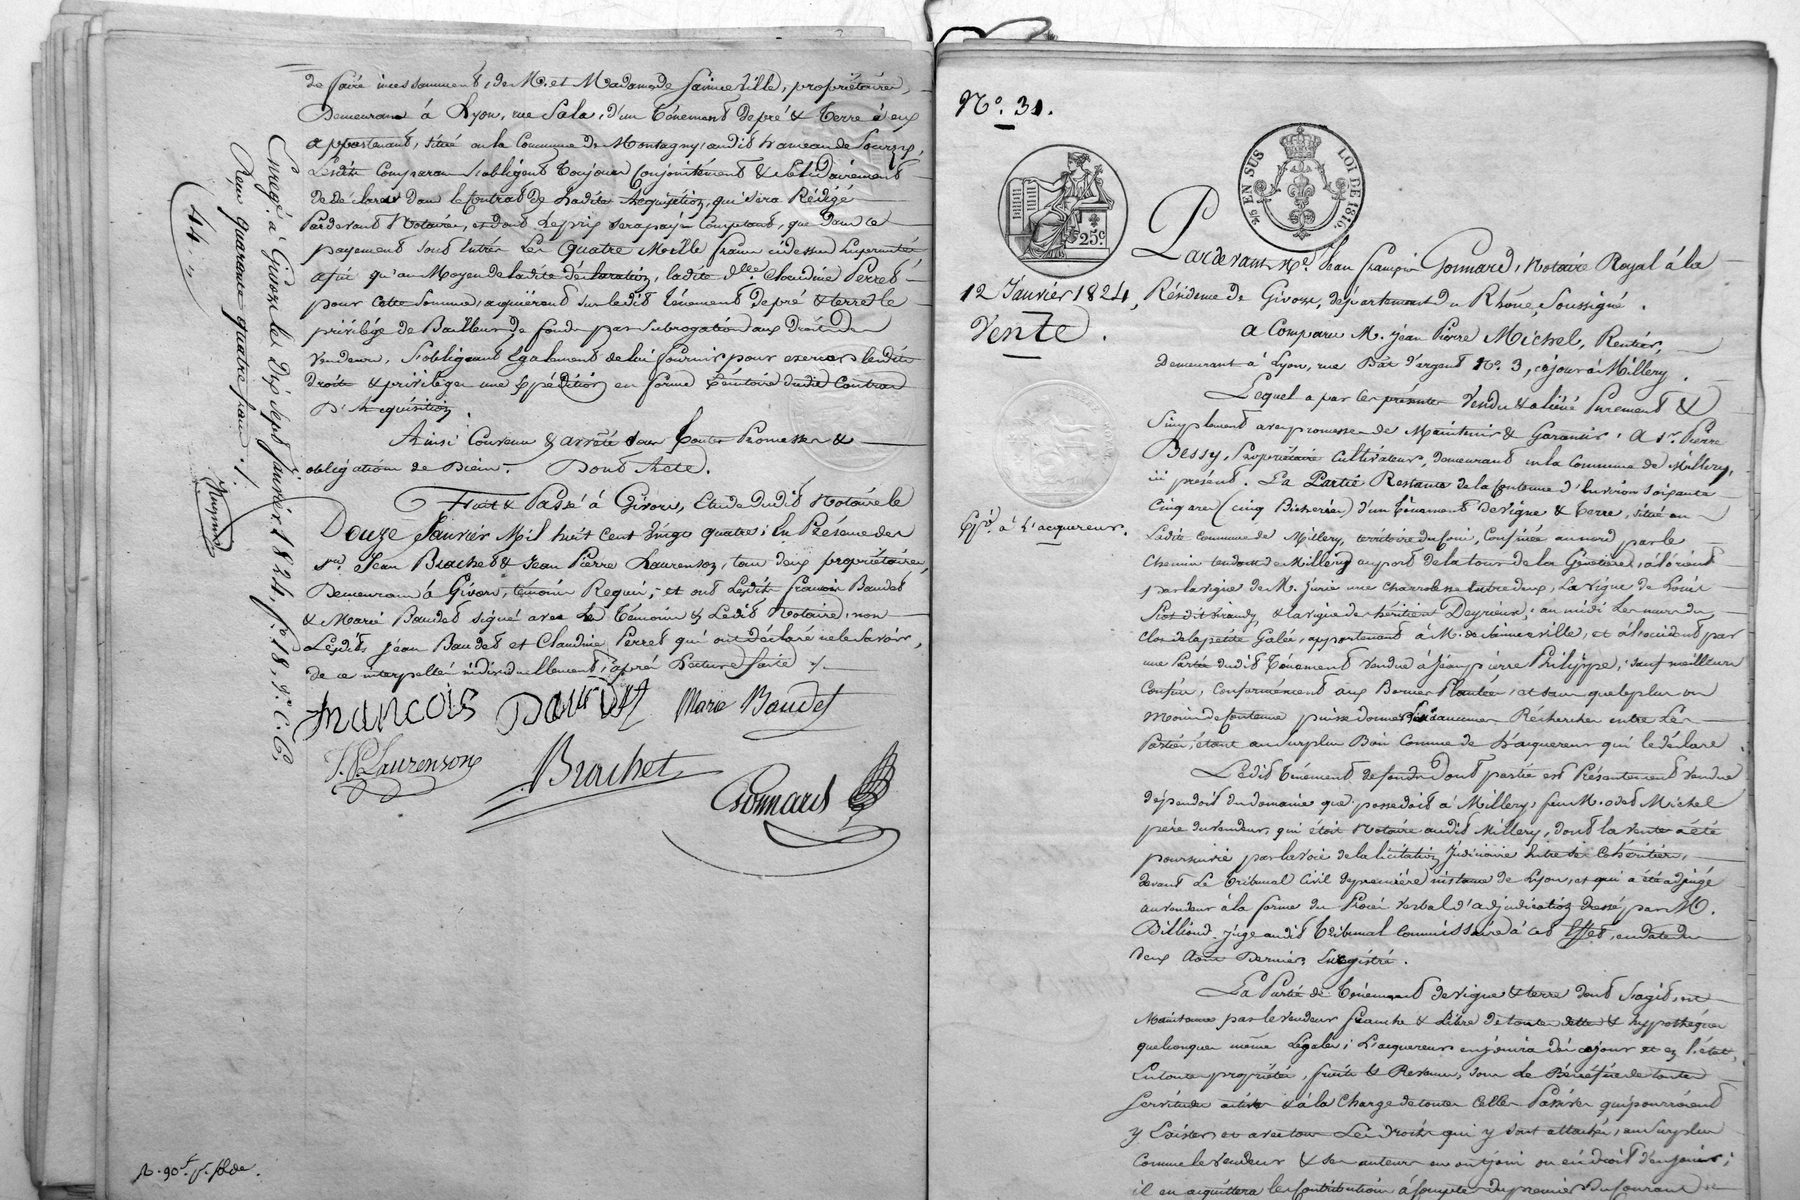 de faire incessament, de M. et Madame de Sainneville, propriétaires,
Demeurant à Lyon, rue Sala, d'un Ténement de pré & Terre à eux
appartenant, situé en la Commune de Montagny, audit hameau de Sourzy,
Lesdits Comparans s'obligent Toujours Conjointement & solidairement
de déclarer dans le Contrat de Ladite Acquisition, qui sera Rédigé
Pardevant Notaire, et dont Le prix sera payé Comptant, que dans ce
payement sont Entrés Les quatre Mille francs cidessus Empruntés
afin qu'au Moyen de ladite déclaration, ladite dlle. Claudine Perret
pour cette Somme, acquièrent sur ledit ténement de pré & terre le
privilège de Bailleur de fonds par subrogation aux droits des
vendeurs, s'obligeant également de lui fournir pour exercer lesdits
droits & privilèges une Expédition en forme Exécutoire dudit Contrat
D'Acquisition.
Ainsi Convenu & arrêté sous toutes Promesses &
obligations de Biens. Dont Acte.
Fait & Passé à Givors, Etude dudit Notaire le
Douze Janvier Mil huit Cent vingt quatre; En Présence des
srs. Jean Brachet & Jean Pierre Laurenson, tous deux propriétaires,
Demeurans à Givors, témoins Requis, et ont Lesdits françois Baudet
& Marie Baudet signé avec les Témoins & Ledit Notaire, non
Lesdits Jean Baudet et Claudine Perret qui ont déclaré ne le savoir,
de ce interpellés individuellement, après Lecture faite ./.
francois Baudet Marie Baudet
J. P. Laurenson Brachet
Gonnard
Enregé. à Givors le Dix sept janvier 1824, f° 18, r° C. 6,
Reçu quarante quatre francs ./.
44 "
N° 31.
25 EN SUS
LOI DE 1816
25c
12 Janvier 1824,
Vente.
Expon. à L'acquereur.
Pardevant Me. Jean françois Gonnard, Notaire Royal à la
Résidence de Givors, département du Rhône, Soussigné.
a Comparu M. Jean Pierre Michel, Rentier,
demeurant à Lyon, rue Plat d'argent N° 3, ce jour à Millery.
Lequel a par les présentes Vendu & aliéné Purement &
Simplement avec promesses de Maintenir & Garantir, A sr. Pierre
Bessy, Propriétaire Cultivateur, demeurant en la Commune de Millery,
ici présent. La Partie Restante de la Contenue d'Environ soixante
Cinq ares (cinq Bicherées) d'un Ténement de vigne & Terre, situé en
Ladite Commune de Millery, territoire du four, Confiné au nord par le
Chemin tendant de Millery au port de la tour de la Genetière, à l'orient
par la vigne de M. Jurie une Charrobesse Entredeux, La vigne de Louis
& la vigne des héritiers Deyrieux; au midi Les murs du
Clos de la petite Galée, appartenant à M. de Sainneville, et à l'occident par
une Partie dudit Ténement vendue à Jean pierre Philippe; sauf meilleurs
Confins, Conformément aux Bornes Plantées, et sans que le plus ou
moins de Contenue puisse donner lieu à aucunes Recherches entre Les
Parties, étant au surplus Bien Connue de L'acquereur qui le déclare.
Ledit ténement de fonds Dont partie est Présentement vendue
dépendoit du domaine que possedoit à Millery, feu M. odet Michel
père du vendeur, qui étoit Notaire audit Millery, dont la vente a été
poursuivie par la voie de la licitation Judiciaire Entre ses Cohéritiers,
devant Le Tribunal Civil de première instance de Lyon, et qui a été adjugé
au vendeur à la forme du Procès verbal d'adjudication dressé par M.
Billioud Juge audit Tribunal Commissaire à cet Effet, en date du
deux Août Dernier, Enregistré.
La Partie de Ténement de vigne & terre dont s'agit, est
Maintenue par le vendeur franche & Libre de toutes dettes & hypothèques
quelconques même Légales; L'acquereur en jouira dès ce jour et en l'état,
En toute propriété, fruits & Revenus, sous le Bénéfice de toutes
Servitudes actives & à la Charge de toutes Celles Passives qui pourroient
y Exister et avec tous Les Droits qui y sont attachés, au surplus
Comme le vendeur & ses auteurs en ont joui ou eu droit d'en jouir;
il en acquittera les Contributions à Compter du premier du Courant